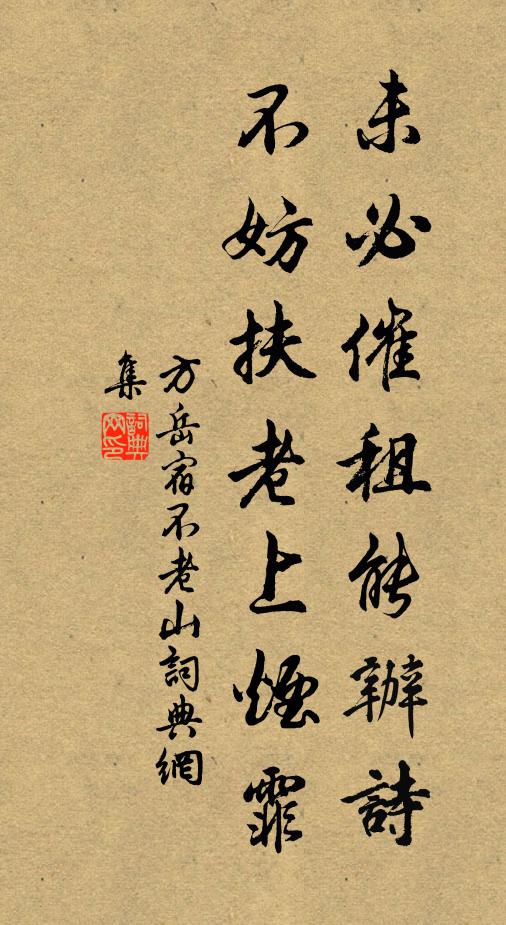 未必催租能辦詩
不妨扶老上煙霏
方岳宿不老山詞典網
集
詞典網印